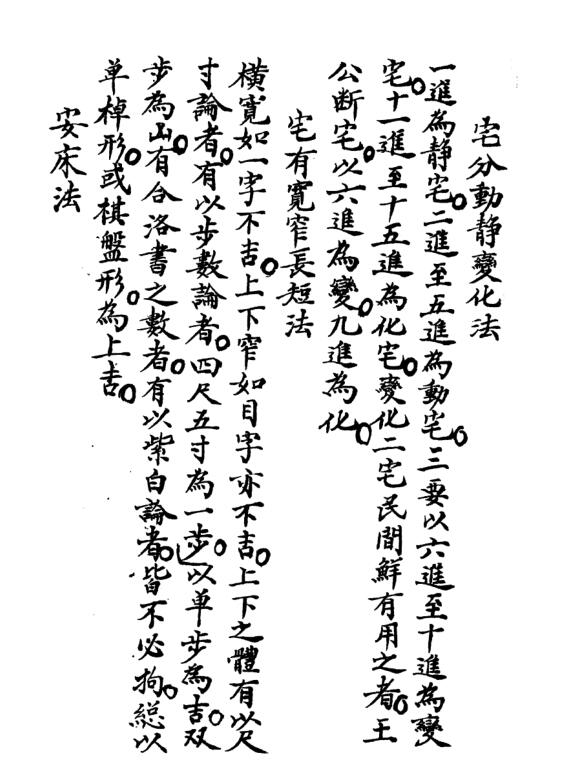 宅分動靜變化法
一進為静宅。二進至五進為動宅。三要以六進至十進為變
宅。十一進至十五進為化宅。變化二宅民間鮮有用之者。王
公断宅。以六進為變。九進為化。
宅有寬窄長短法
橫寬如一字不吉。上下窄如目字亦不吉。上下之體有以尺
寸論者。有以步數論者。四尺五寸為一步。以单步為吉。双
步為凶。有合洛書之數者。有以紫白論者。皆不必拘。総以
单棹形。或棋盤形。為上吉。
安床法